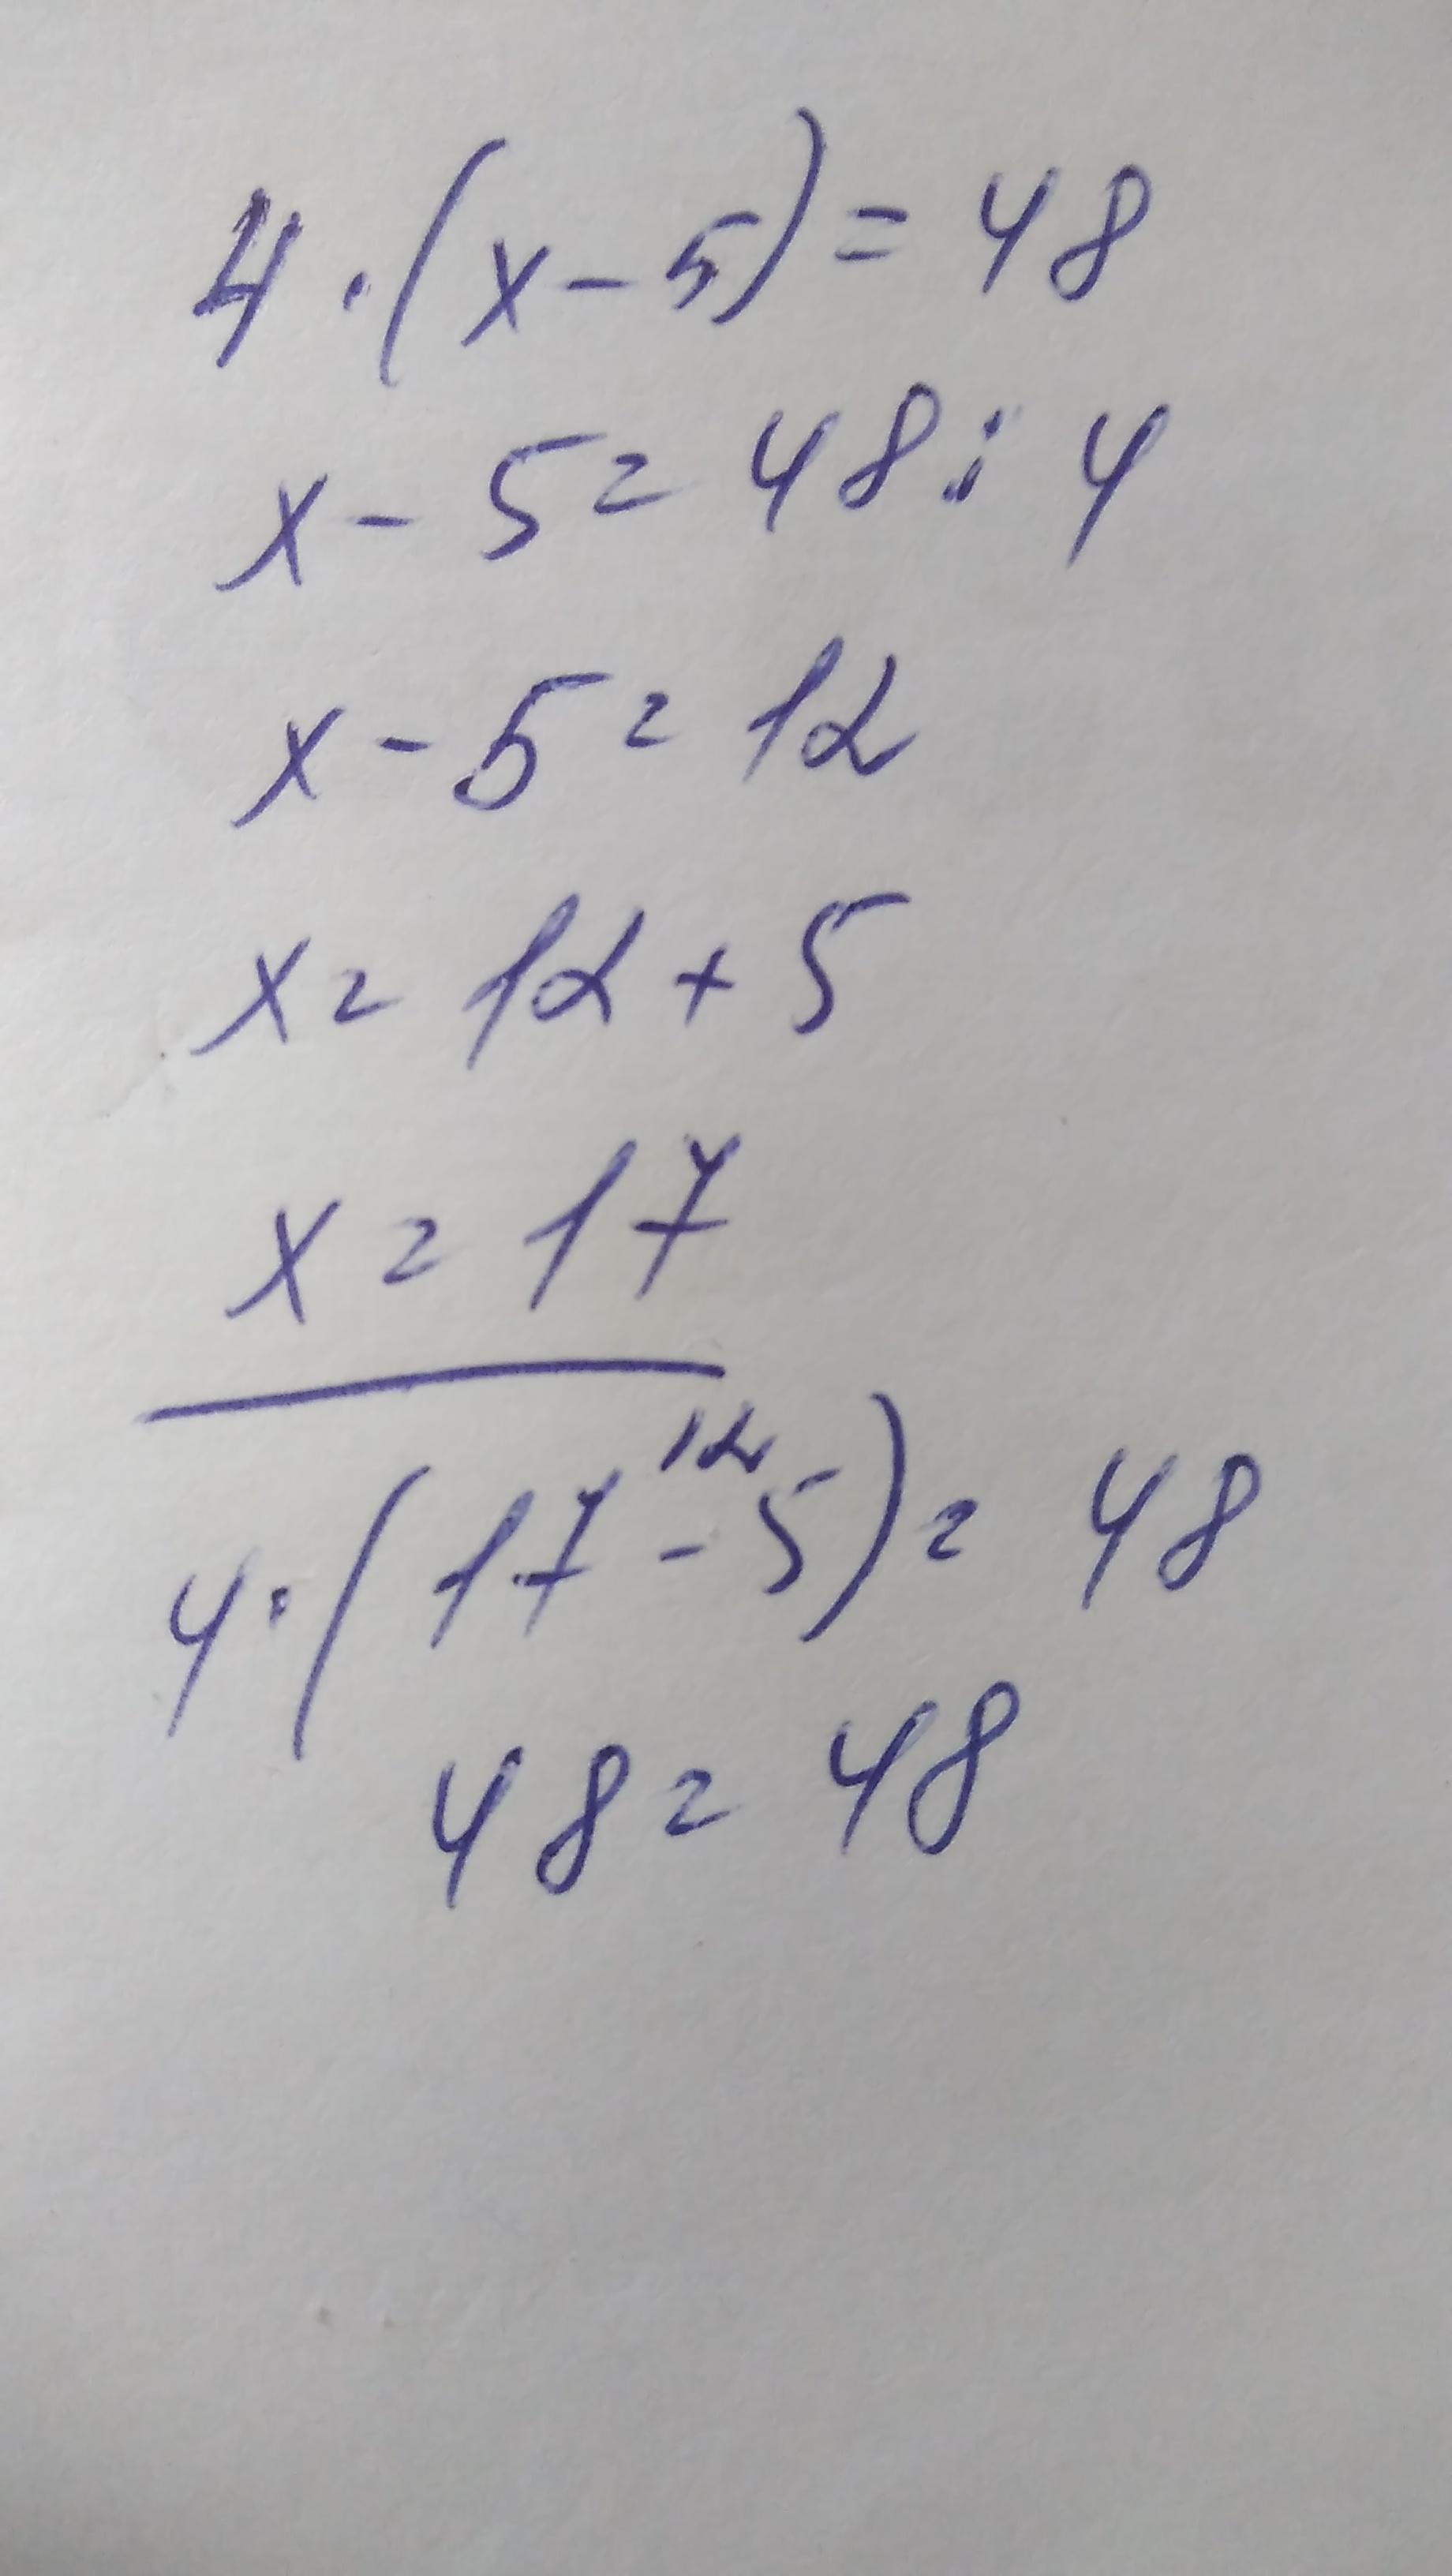 4 · (x - 5) = 48
x - 5 = 48 : 4
x - 5 = 12
x = 12 + 5
x = 17
12
4 · (17 - 5) = 48
48 = 48